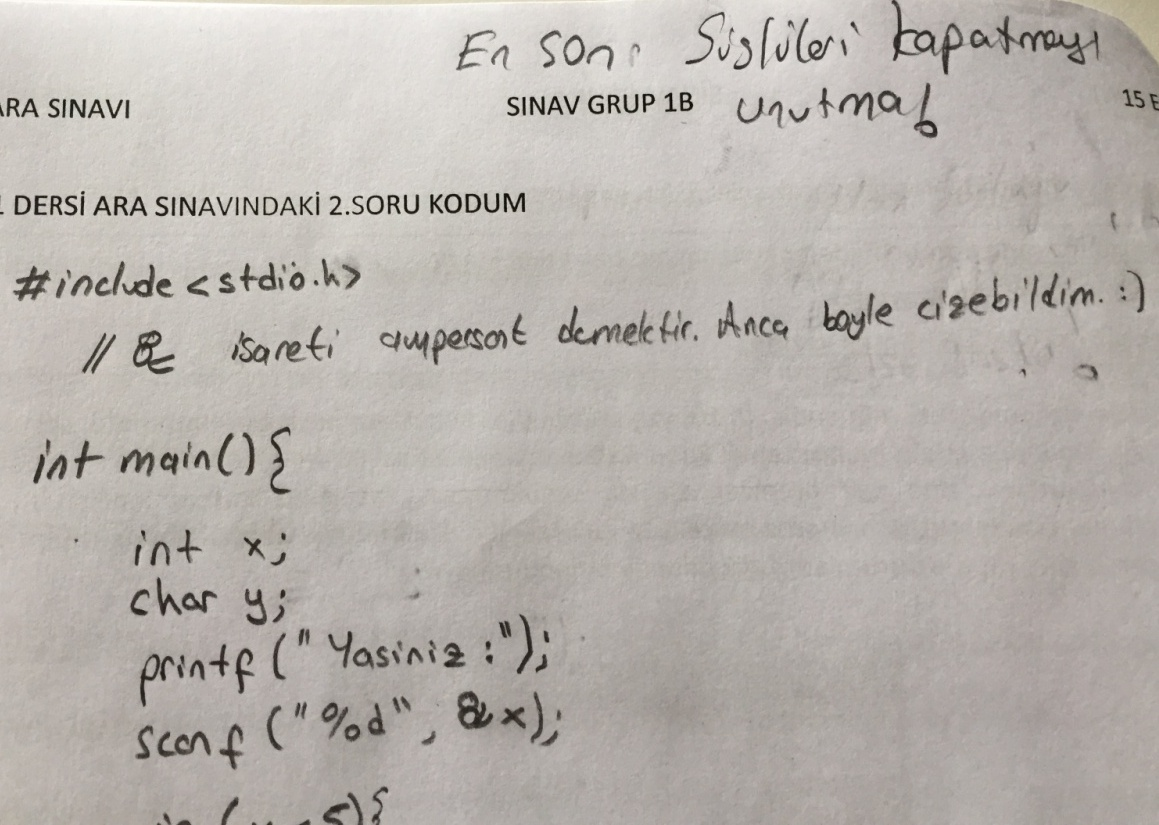 En son: Süslüleri kapatmayı
ARA SINAVI SINAV GRUP 1B unutma! 15 E
DERSİ ARA SINAVINDAKİ 2.SORU KODUM
#include <stdio.h>
// & isareti ampersant demektir. Anca boyle cizebildim. :)
int main(){
int x;
char y;
printf ("Yasiniz :");
scanf ("%d", &x);